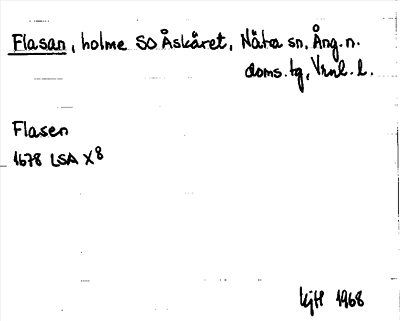 Flasan, holme SO Åskäret, Nätra sn, Ång. n.
doms. tg, Vrnl. l.
Flasen
1678 LSA X8
KjH 1968